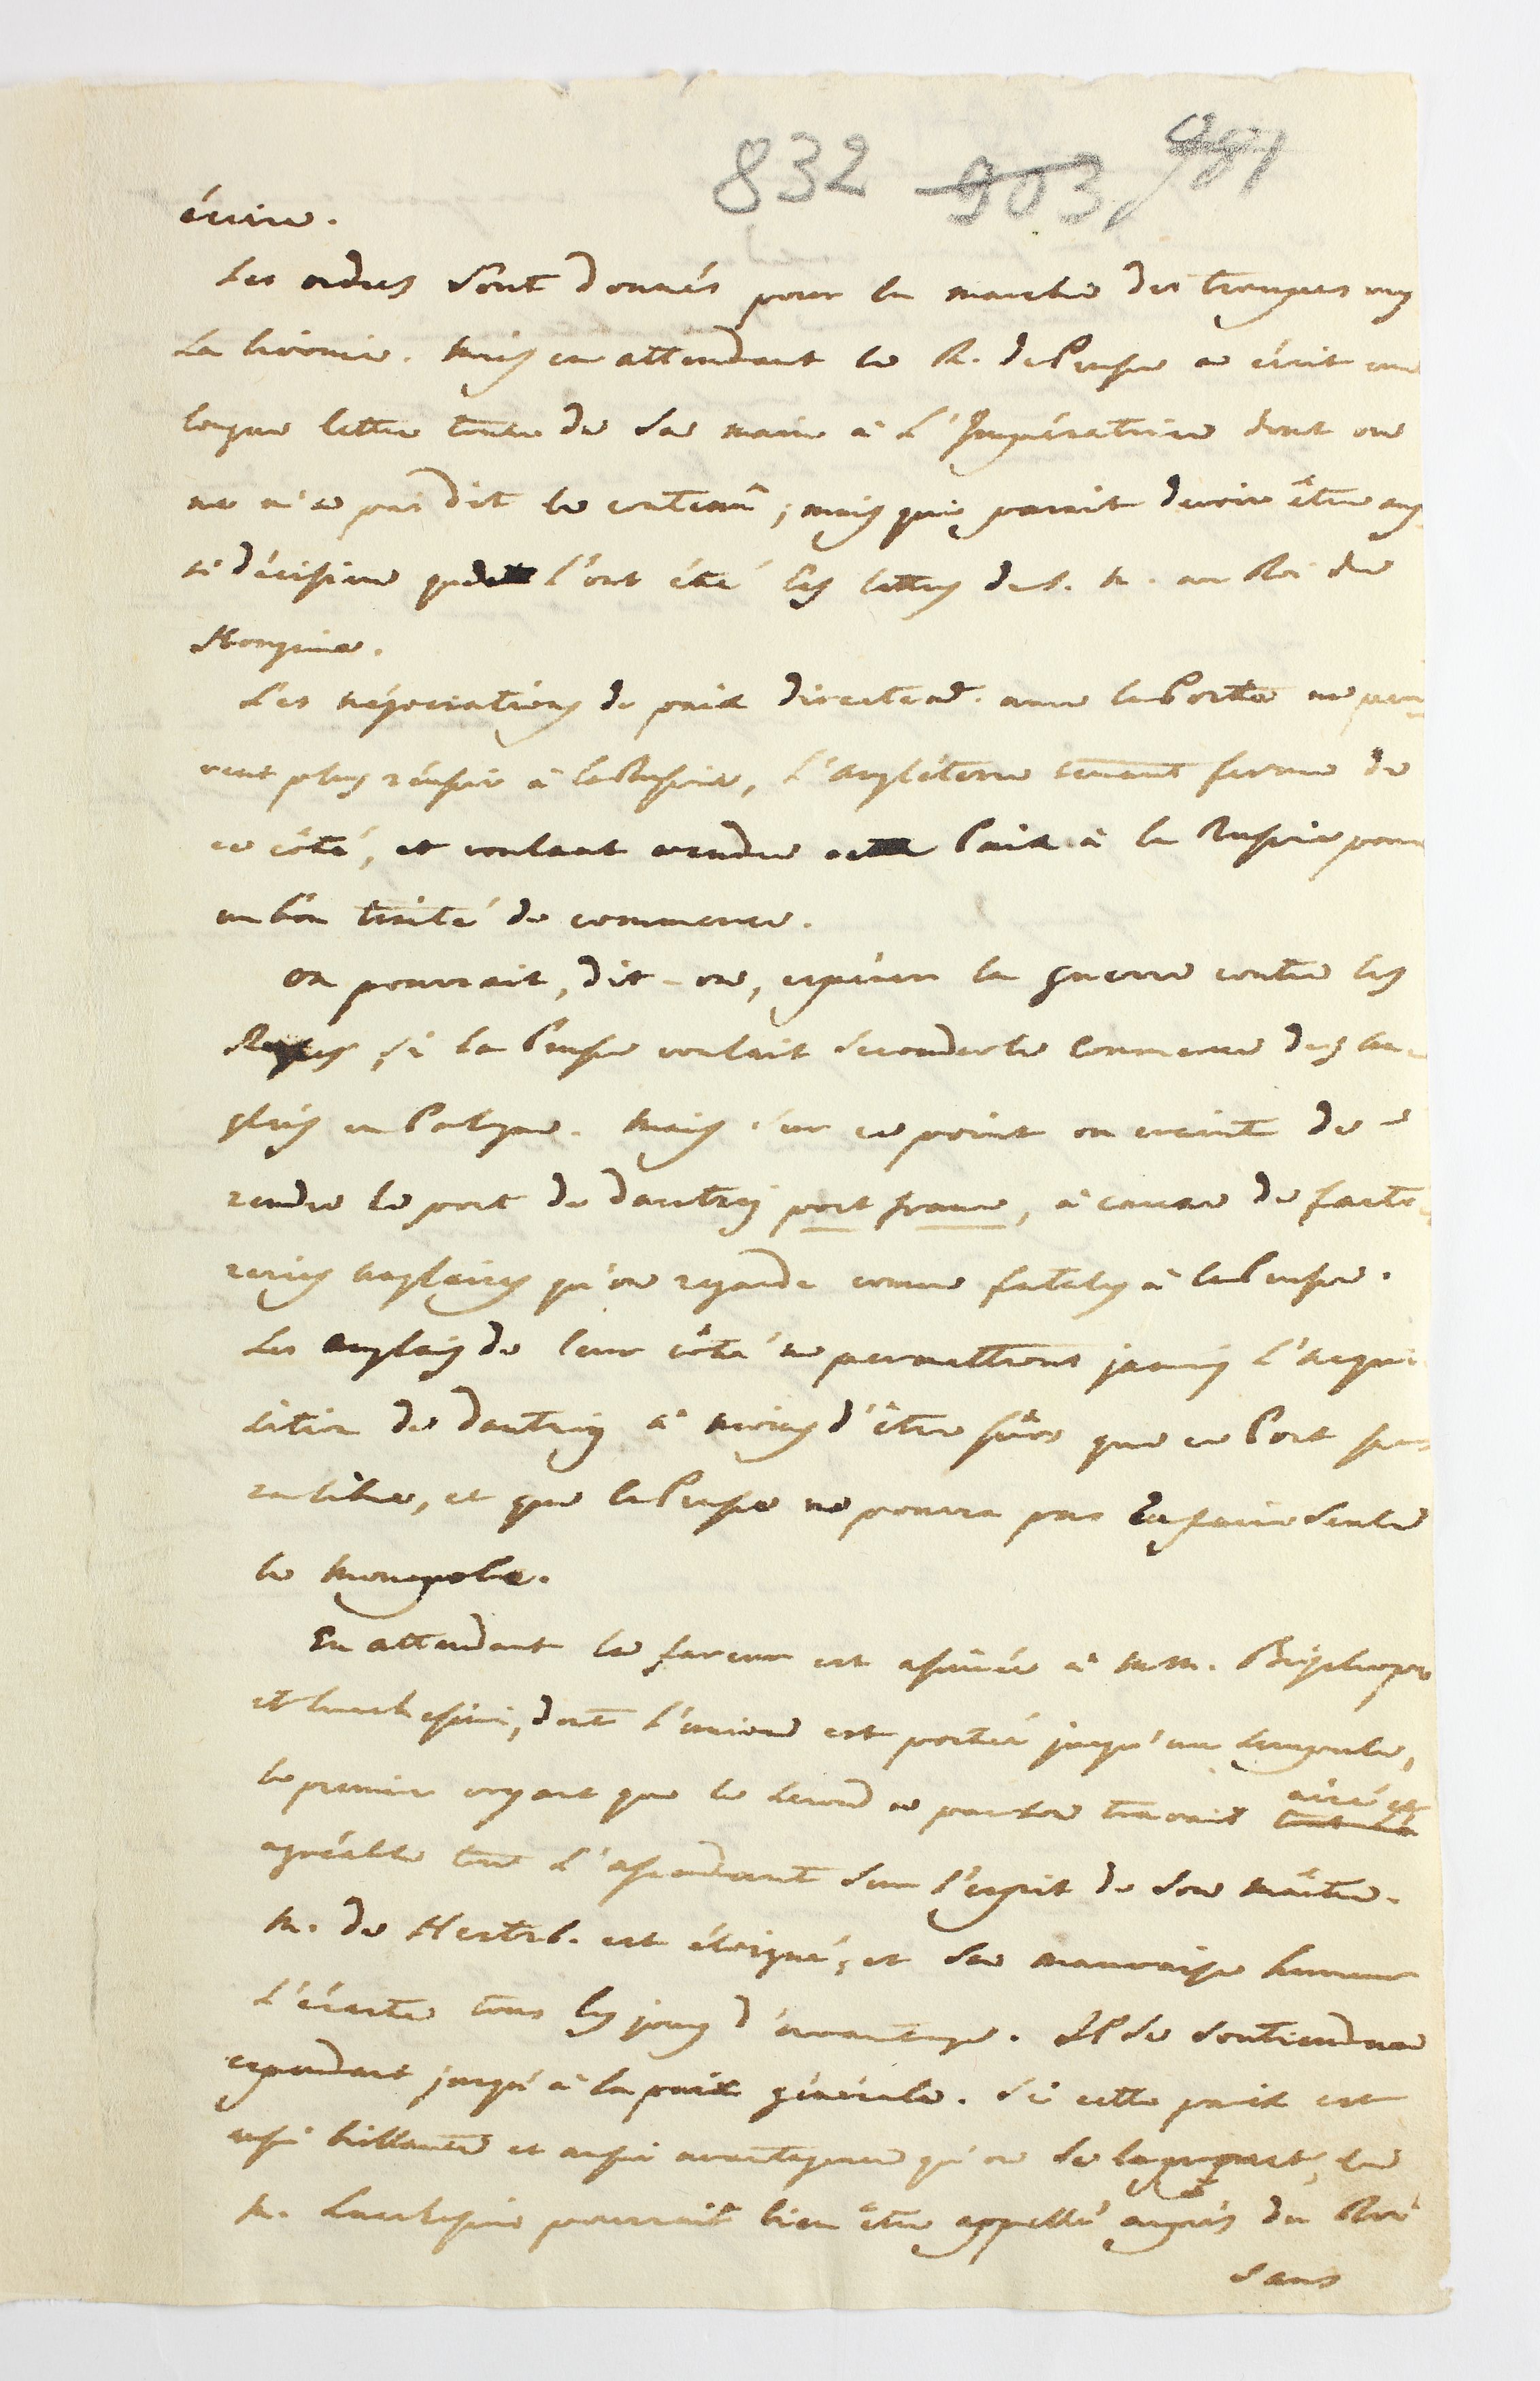 832 903
écrire.
Les ordres sont donnés pour la marche des troupes vers
La livonie. Mais en attendant le R. de Prusse a écrit une
longue lettre toute de sa main à l'Impératrice dont on
ne m'a pas dit le contenû; mais qui parait devoir être aus
si décisive que l'ont été les lettres de S. M. au Roi de
Hongrie.
Les négociations de paix directem. avec la Porte ne peu
vent plus réussir à la Russie, l'Angléterre tenant ferme de
ce côté, et voulant vendre cette Paix à la Russie pour
un bon traité de commerce.
On pourrait, dit-on, espérer la guerre contre les
Russes, si la Prusse voulait seconder le commerce des An
glais en Pologne. Mais sur ce point on craint de
rendre le port de Dantzig port franc, à cause de facto
reries Anglaises qu'on regarde comme fatales à la Prusse.
Les Anglais de leur côté ne permettront jamais l'Acqui
sition de Dantzig à moins d'être sûrs que ce Port se
ra libre, et que la Prusse ne pourra pas en faire seule
le monopole.
En attendant la faveur est assurée à MM. Bischofswer
et Lucchesini, dont l'union est portée jusqu'au scrupule,
le premier voyant que le second a par son travail aisé et
agréable tant d'ascendant sur l'esprit de son maître.
M. de Hertzb. est éloigné, et sa mauvaise humeur
l'écarte tous les jours d'avantage. Il se soutiendra
cependant jusqu'à la paix générale. Si cette paix est
aussi brillante et aussi avantageuse qu'on se la promet,
M. Lucchesini pourrait bien être appellé auprès du Roi
sans